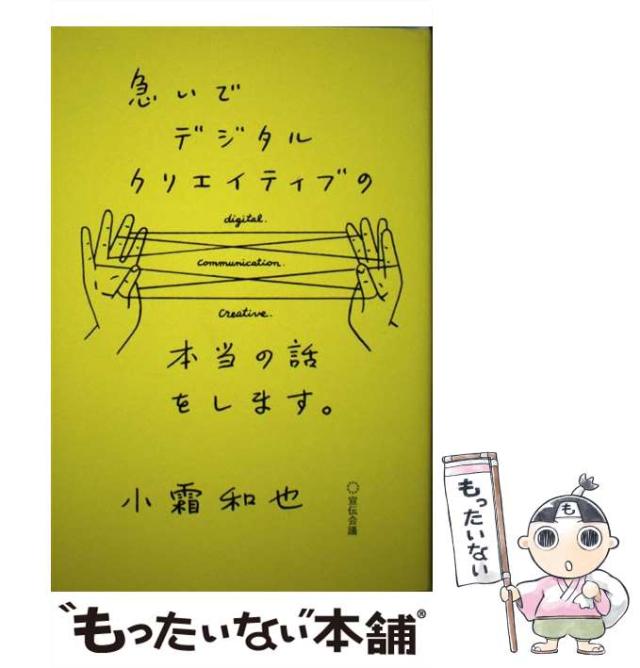 急いで
デジタル
クリエイティブの
digital.
communication.
creative.
本当の話
をします。
小霜和也
宣伝会議
もったいない
も
“もったいない”本舗®